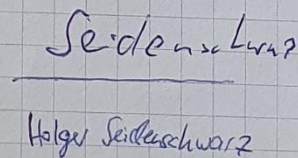 Seidenschwarz
Holger Seidenschwarz